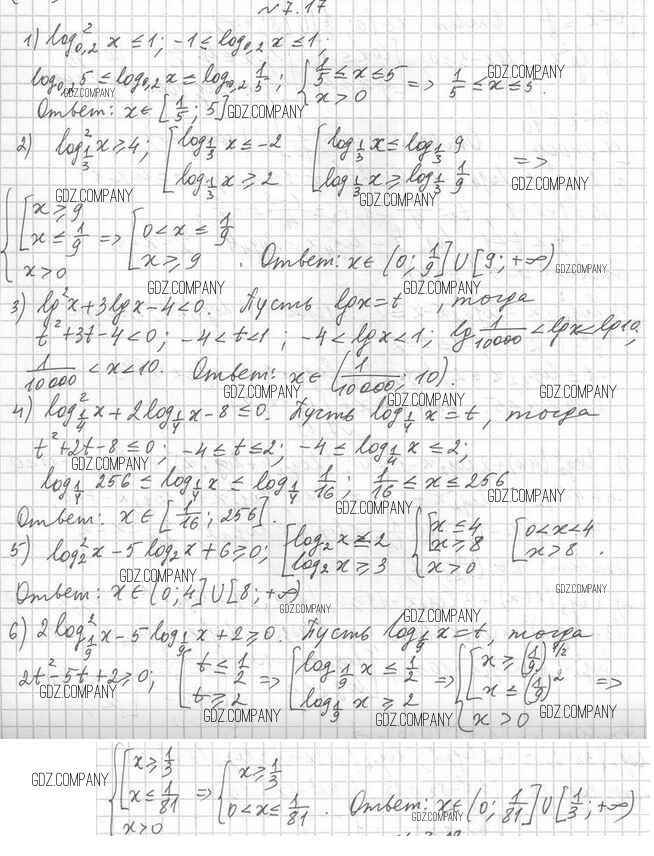 № 7.17
1) log²₀,₂ x ≤ 1; -1 ≤ log₀,₂ x ≤ 1;
log₀,₂ 5 ≤ log₀,₂ x ≤ log₀,₂ 1/5; { 1/5 ≤ x ≤ 5 x > 0 => 1/5 ≤ x ≤ 5. GDZ.COMPANY
GDZ.COMPANY
Ответ: x ∈ [1/5; 5] GDZ.COMPANY
2) log²_{1/3} x ≥ 4; [ log_{1/3} x ≤ -2 log_{1/3} x ≥ 2 [ log_{1/3} x ≤ log_{1/3} 9 log_{1/3} x ≥ log_{1/3} 1/9 =>
GDZ.COMPANY GDZ.COMPANY GDZ.COMPANY
{ [ x ≥ 9 x ≤ 1/9 x > 0 => [ 0 < x ≤ 1/9 x ≥ 9 . Ответ: x ∈ (0; 1/9] ∪ [9; +∞)
GDZ.COMPANY GDZ.COMPANY GDZ.COMPANY
3) lg²x + 3lgx - 4 < 0. Пусть lgx = t, тогда
t² + 3t - 4 < 0; -4 < t < 1; -4 < lgx < 1; lg 1/10000 < lgx < lg10,
1/10000 < x < 10. Ответ: x ∈ (1/10000; 10).
GDZ.COMPANY GDZ.COMPANY GDZ.COMPANY
4) log²_{1/4} x + 2log_{1/4} x - 8 ≤ 0. Пусть log_{1/4} x = t, тогда
t² + 2t - 8 ≤ 0; -4 ≤ t ≤ 2; -4 ≤ log_{1/4} x ≤ 2;
GDZ.COMPANY
log_{1/4} 256 ≤ log_{1/4} x ≤ log_{1/4} 1/16; 1/16 ≤ x ≤ 256
GDZ.COMPANY
Ответ: x ∈ [1/16; 256]. GDZ.COMPANY
5) log²₂x - 5log₂x + 6 ≥ 0; [ log₂x ≤ 2 log₂x ≥ 3 { [ x ≤ 4 x ≥ 8 x > 0 [ 0 < x < 4 x > 8 .
GDZ.COMPANY GDZ.COMPANY
Ответ: x ∈ (0; 4] ∪ [8; +∞)
GDZ.COMPANY GDZ.COMPANY
6) 2log²_{1/9} x - 5log_{1/9} x + 2 ≥ 0. Пусть log_{1/9} x = t, тогда
2t² - 5t + 2 ≥ 0; [ t ≤ 1/2 t ≥ 2 => [ log_{1/9} x ≤ 1/2 log_{1/9} x ≥ 2 => { [ x ≥ (1/9)^{1/2} x ≤ (1/9)² x > 0 =>
GDZ.COMPANY GDZ.COMPANY GDZ.COMPANY GDZ.COMPANY
GDZ.COMPANY { [ x ≥ 1/3 x ≤ 1/81 x > 0 => { x ≥ 1/3 0 < x ≤ 1/81 . Ответ: x ∈ (0; 1/81] ∪ [1/3; +∞)
GDZ.COMPANY